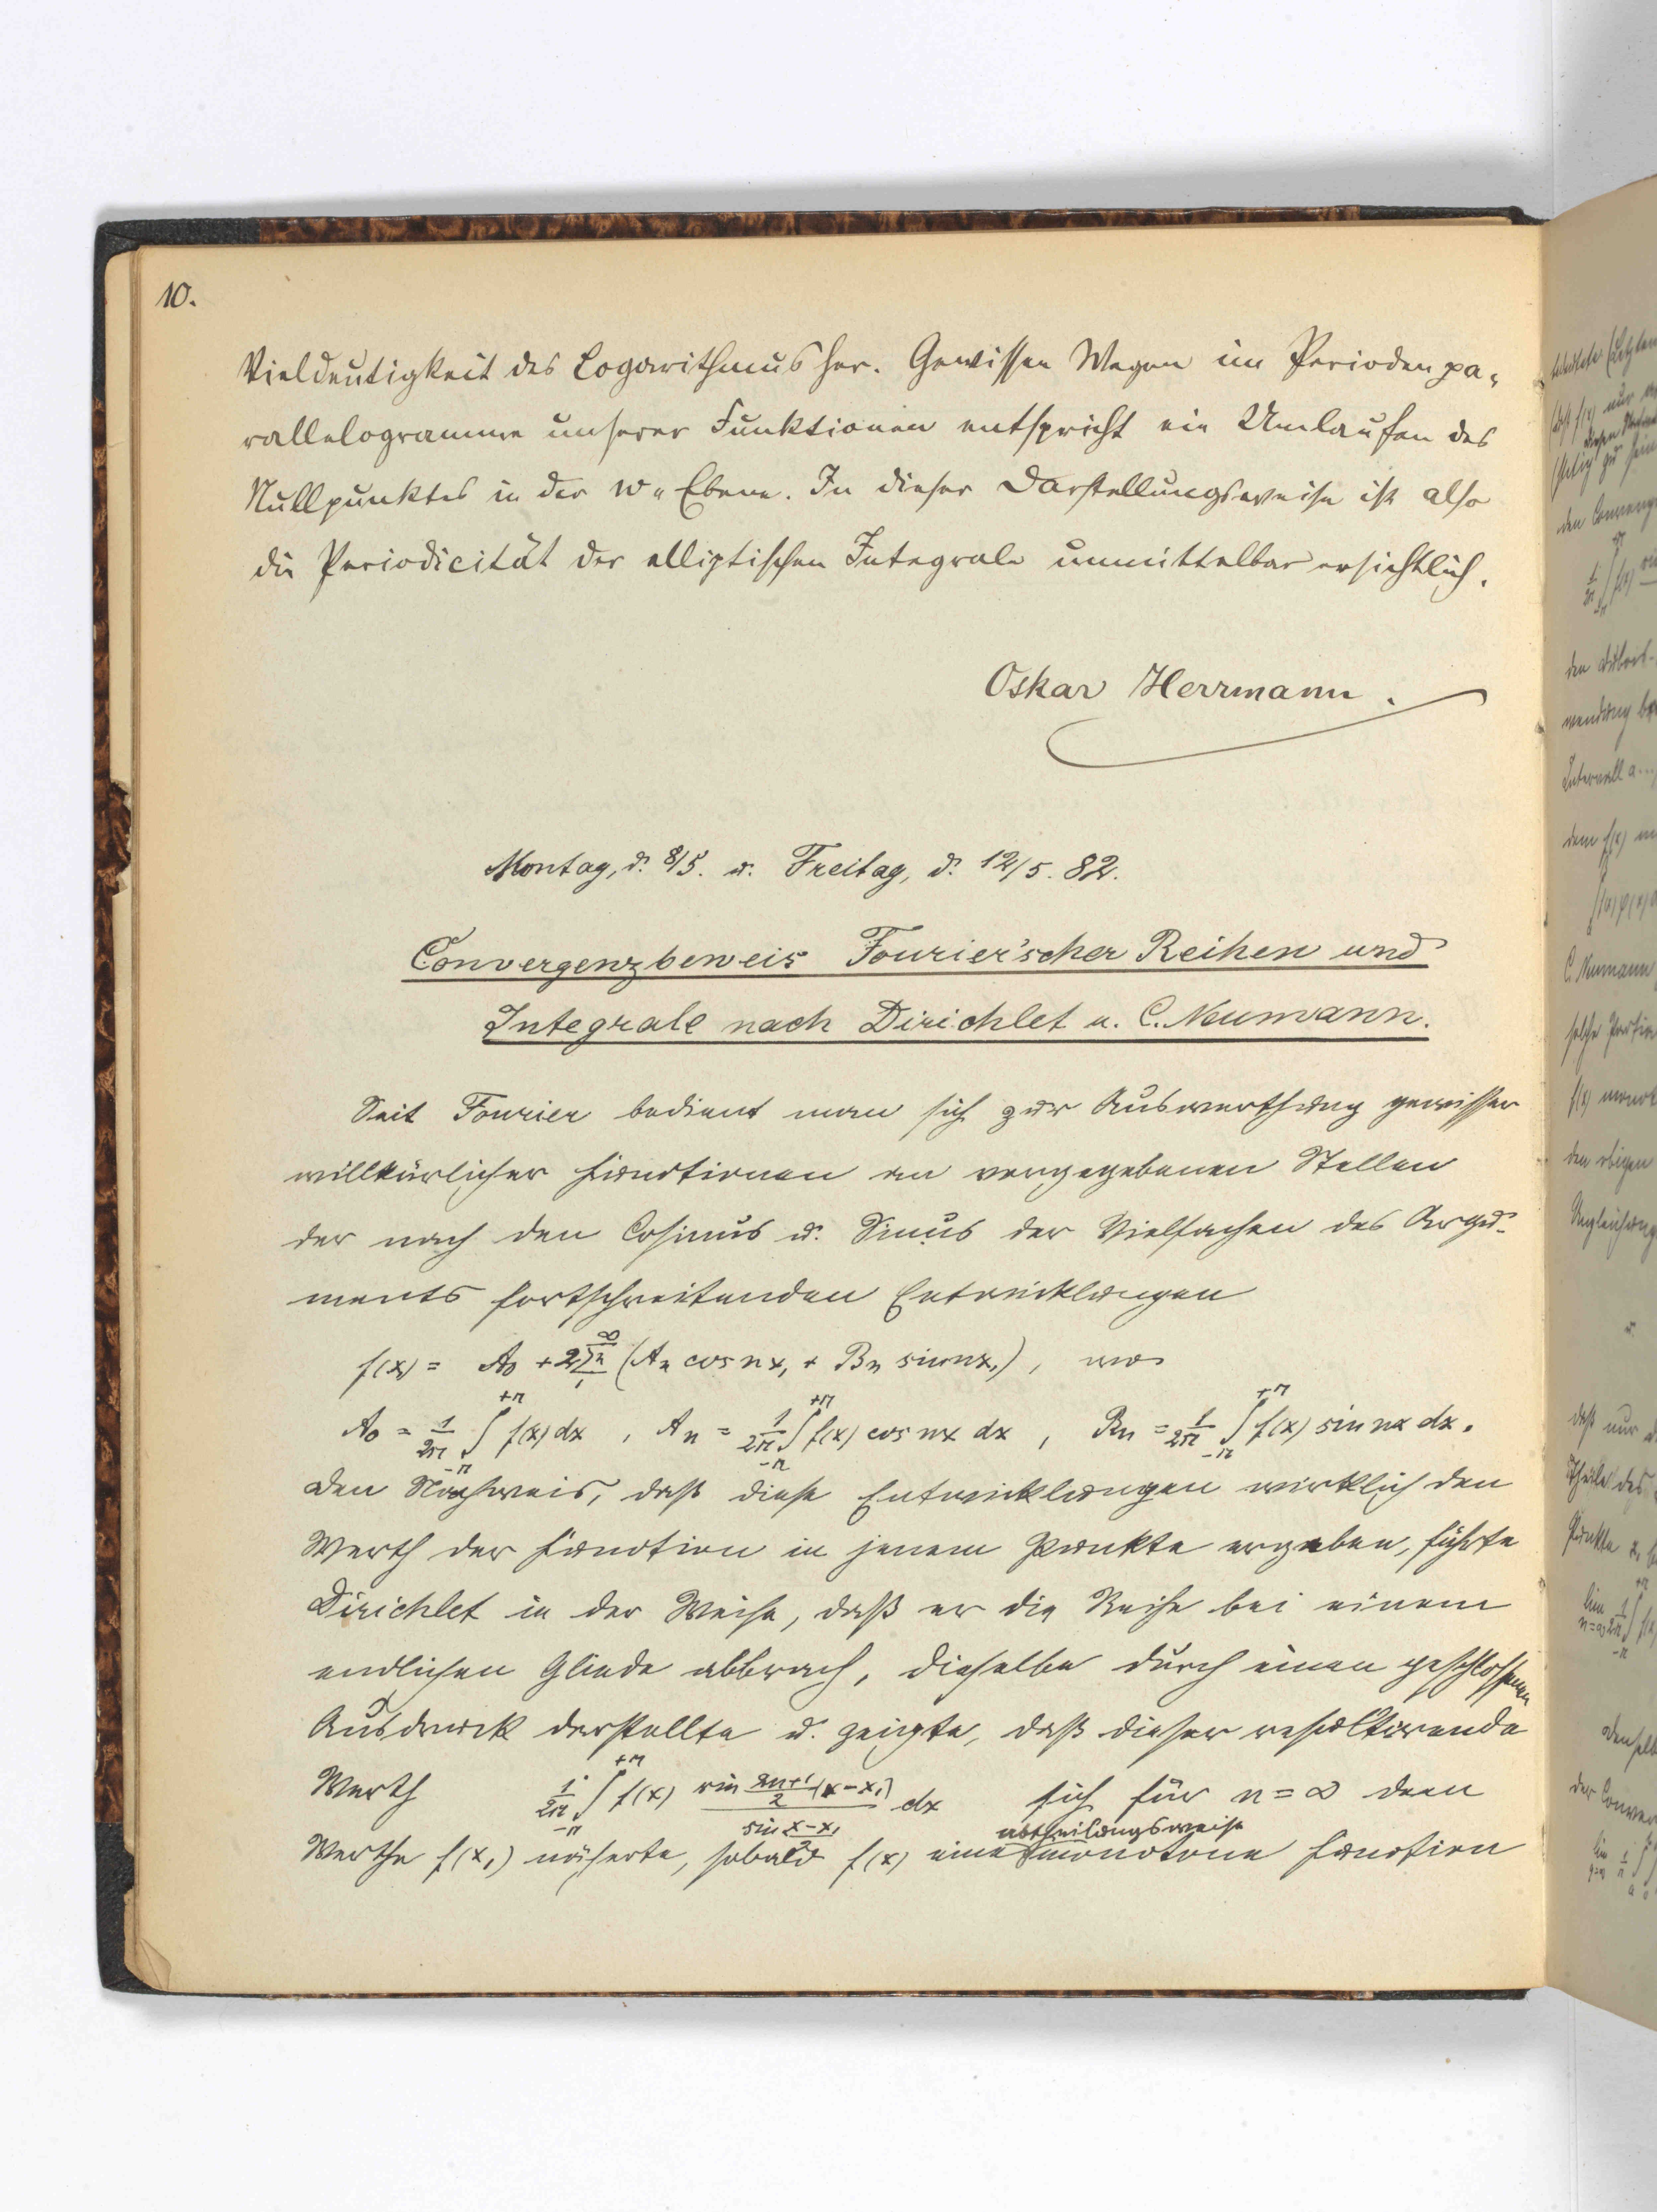 10.
Vieldeutigkeit des Logarithmus her. Gewissen Wegen im Periodenpa-
rallelogramme unserer Funktionen entspricht ein Umlaufen des
Nullpunktes in der w-Ebene. In dieser Darstellungsweise ist also
die Periodicität der elliptischen Integrale unmittelbar ersichtlich.
Oskar Herrmann.
Montag, d. 8/5. u. Freitag, d. 12/5. 82.
Convergenzbeweis Fourier'scher Reihen und
Integrale nach Dirichlet u. C. Neumann.
Seit Fourier bedient man sich zur Auswerthung gewisser
willkürlicher Functionen an vorgegebenen Stellen
der nach den Cosinus u. Sinus der Vielfachen des Argu-
ments fortschreitenden Entwicklungen
f(x₁) = A₀ + 2 ∑ₙ₁^∞ (Aₙ cos nx₁ + Bₙ sin nx₁), wo
A₀ = 1/2π ∫_{-π}^{+π} f(x) dx, Aₙ = 1/2π ∫_{-π}^{+π} f(x) cos nx dx, Bₙ = 1/2π ∫_{-π}^{+π} f(x) sin nx dx.
Den Nachweis, daß diese Entwicklungen wirklich den
Werth der Function in jenem Punkte ergeben, führte
Dirichlet in der Weise, daß er die Reihe bei einem
endlichen Gliede abbrach, dieselbe durch einen geschlossenen
Ausdruck darstellte u. zeigte, daß dieser resultirende
Werth 1/2π ∫_{-π}^{+π} f(x) (sin (2n+1)/2 (x-x₁))/(sin (x-x₁)/2) dx sich für n = ∞ dem
abtheilungsweise
Werthe f(x₁) näherte, sobald f(x) eine monotone Function